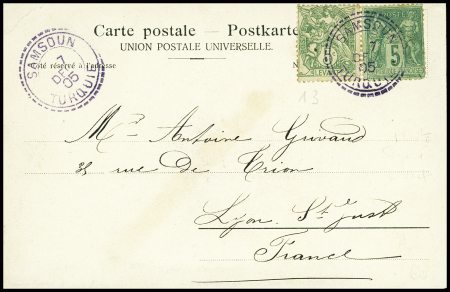 Carte postale — Postkarte
UNION POSTALE UNIVERSELLE.
Côté réservé à l'adresse
SAMSOUN
7
DEC
05
TURQUIE
SAMSOUN
7
DEC
05
TURQUIE
LEVANT
5
13
Mr Antoine Guvaud
rue De Trion
Lyon St Just
France